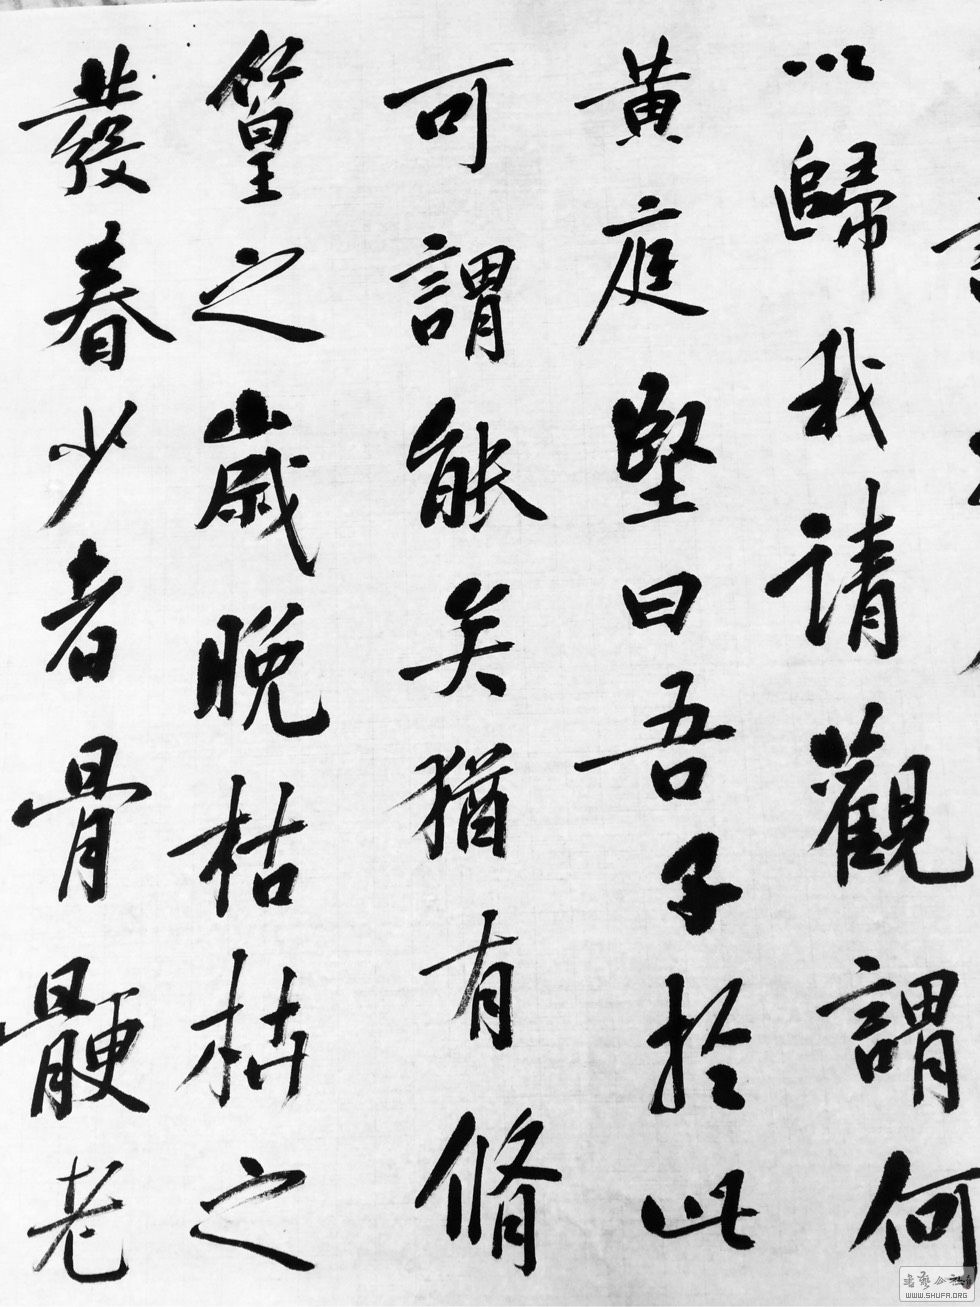 以歸我請觀謂何
黃庭堅曰吾子於此
可謂能矣猶有脩
篁之歲晚枯枯之
發春少者骨骾老
書藝公社
WWW.SHUFA.ORG